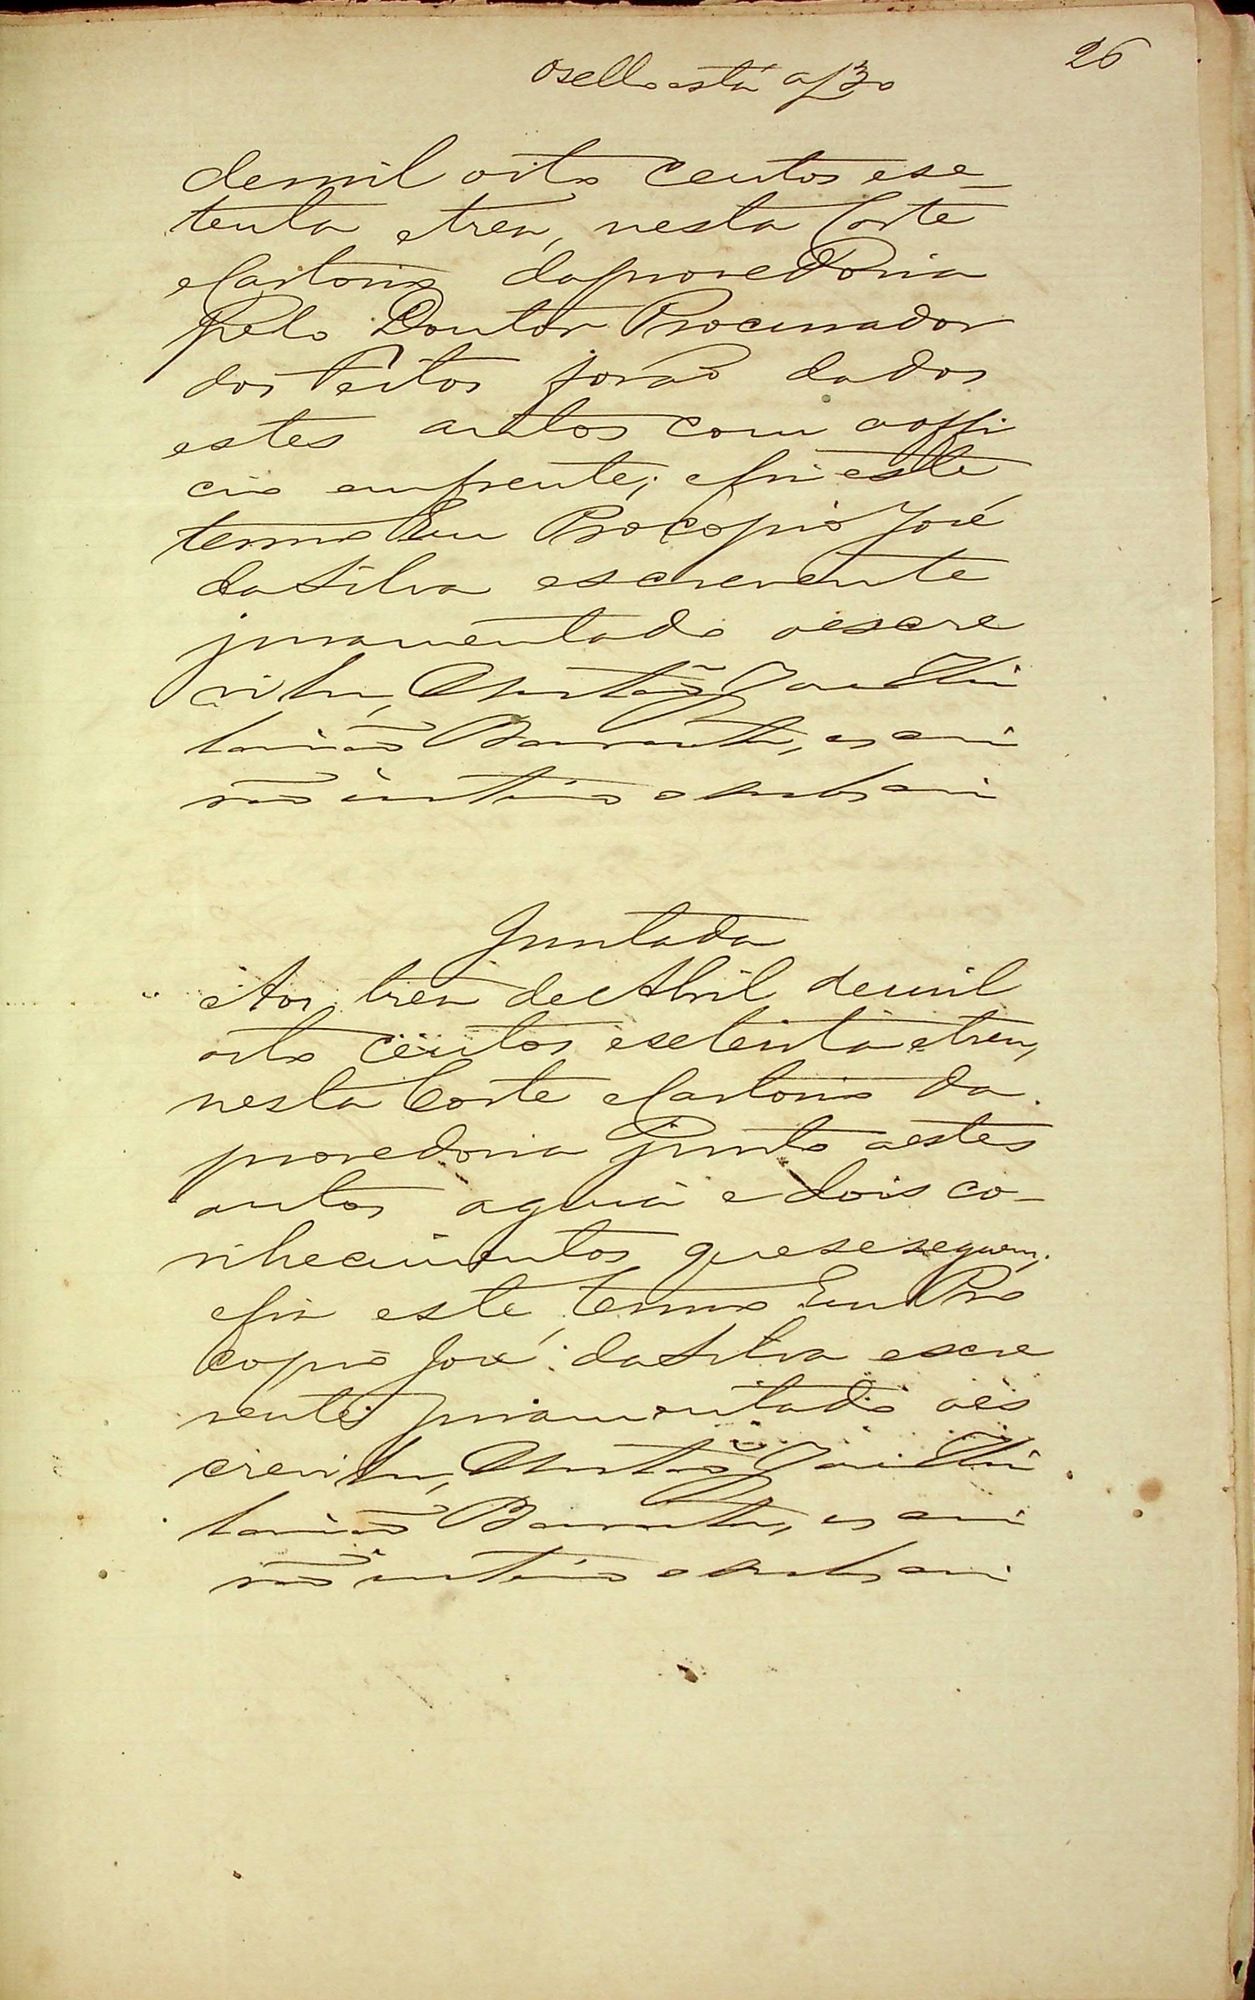 26
o sello está a f 30
de mil oito centos e se-
tenta e tres, nesta Corte
e Cartorio da provedoria
pelo Doutor Procurador
dos Feitos forão dados
estes autos com o offi
cio em frente; e fiz este
termo Eu Procopio José
da Silva escrevente
juramentado o escre
vi Eu, José
Barreto, escri
vão interino o subscrevi
Juntada
Aos tres de Abril de mil
oito centos e setenta e tres,
nesta Corte e Cartorio da
provedoria junto a estes
autos a guia e dois co-
nhecimentos que se seguem;
e fiz este termo Eu Pro
copio José da Silva escre
vente juramentado o es
crevi Eu, José
Barreto, escri
vão interino o subscrevi